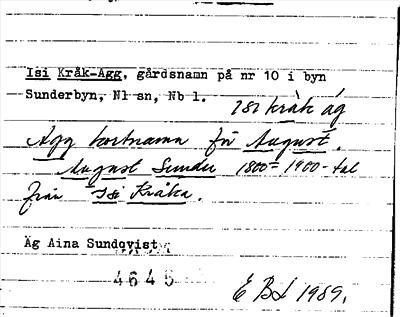 Isi Kråk-Agg, gårdsnamn på nr 10 i byn
Sunderbyn, Nl sn, Nb l.
ısı kråk ág
Agg kortnamn för August.
August Sundu 1800=1900-tal
från Isi Kråka.
Äg Aina Sundqvist
4645
E Bd 1989.